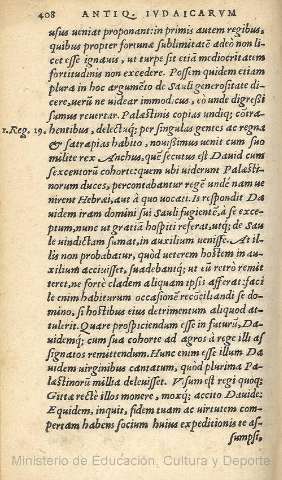 408 ANTIQ. IVDAICARVM
usus veniat proponant: in primis autem regibus,
quibus propter fortunæ sublimitatē adeò non li-
cet esse ignauis, ut turpe sit etiā mediocritatem
fortitudinis non excedere. Possem quidem etiam
plura in hoc argumēto de Sauli generositate di-
cere, verū ne videar immodicus, eò unde digressi
sumus reuertar. Palæstinis copias undiq; cōtra-
1. Reg. 19. hentibus, delectuq; per singulas gentes ac regna
& satrapias habito, nouissimus uenit cum suo
milite rex Anchus, quē secutus est Dauid cum
sexcentorū cohorte: quem ubi viderunt Palæsti-
norum duces, percontabantur regē unde nam ue
nirent Hebræi, aut à quo uocati. Is respondit Da
uidem iram domini sui Sauli fugientē, à se exce-
ptum, nunc ut gratiā hospitij referat, utq; de Sau
le vindictam sumat, in auxilium uenisse. At il-
lis non probabatur, quòd ueterem hostem in au-
xilium acciuisset, suadebantq; ut eū retrò remit
teret, ne fortè cladem aliquam ipsis afferat: faci
le enim habiturum occasionē recōciliandi se do-
mino, si hostibus eius detrimentum aliquod at-
tulerit. Quare prospiciendum esse in futurū, Da-
uidemq; cum sua cohorte ad agros à rege illi as
signatos remittendum. Hunc enim esse illum Da
uidem uirginibus cantatum, quòd plurima Pa-
læstinorū millia deleuisset. Visum est regi quoq;
Gutæ rectè illos monere, moxq; accito Dauide:
Equidem, inquit, fidem tuam ac uirtutem com-
pertam habens socium huius expeditionis te as-
sumpsi,
Ministerio de Educación, Cultura y Deporte